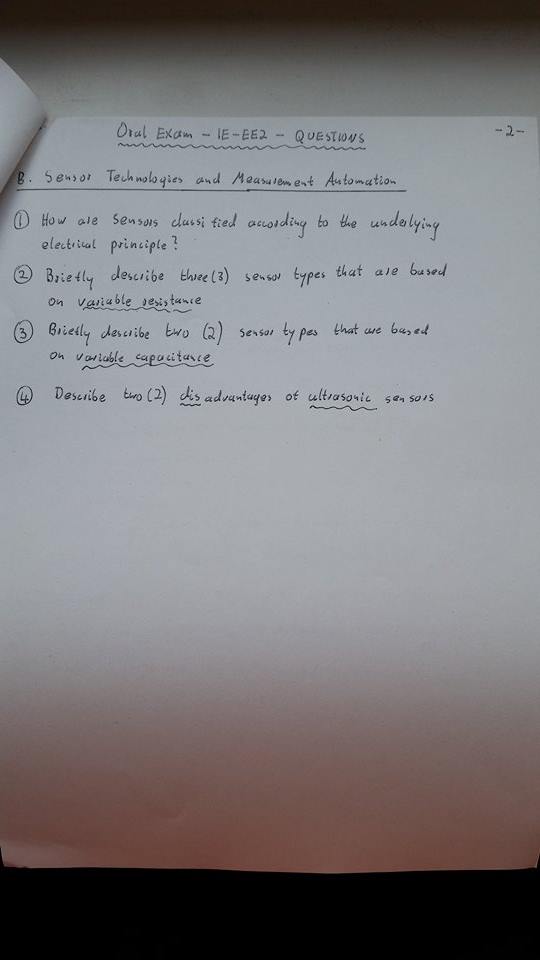 Oral Exam - IE-EE2 - QUESTIONS
-2-
B. Sensor Technologies and Measurement Automation
① How are sensors classified according to the underlying
electrical principle?
② Briefly describe three (3) sensor types that are based
on variable resistance
③ Briefly describe two (2) sensor types that are based
on variable capacitance
④ Describe two (2) disadvantages of ultrasonic sensors